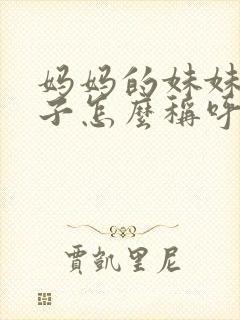 妈妈的妹妹
子怎麼稱呼
賈凱里尼